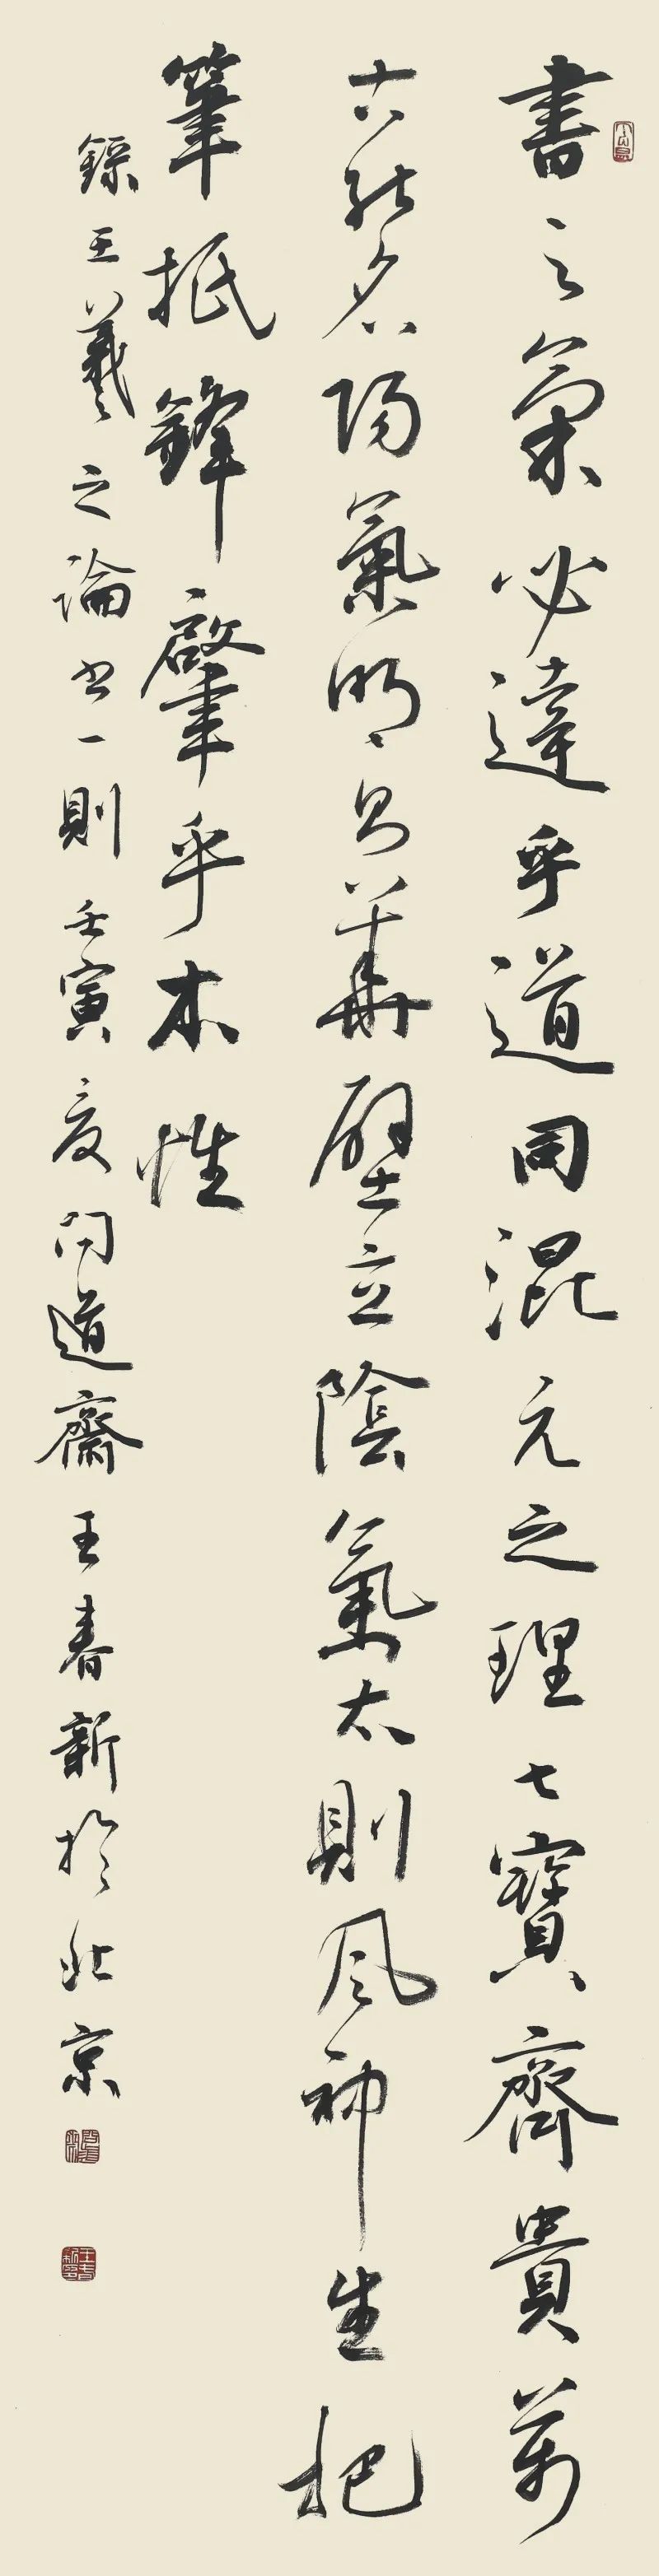 書之氣必達乎道同混元之理七寶齊貴萬
古能名陽氣明則華壁立陰氣太則風神生把
筆抵鋒肇乎本性
錄王羲之論書一則壬寅夏問道齋王春新於北京